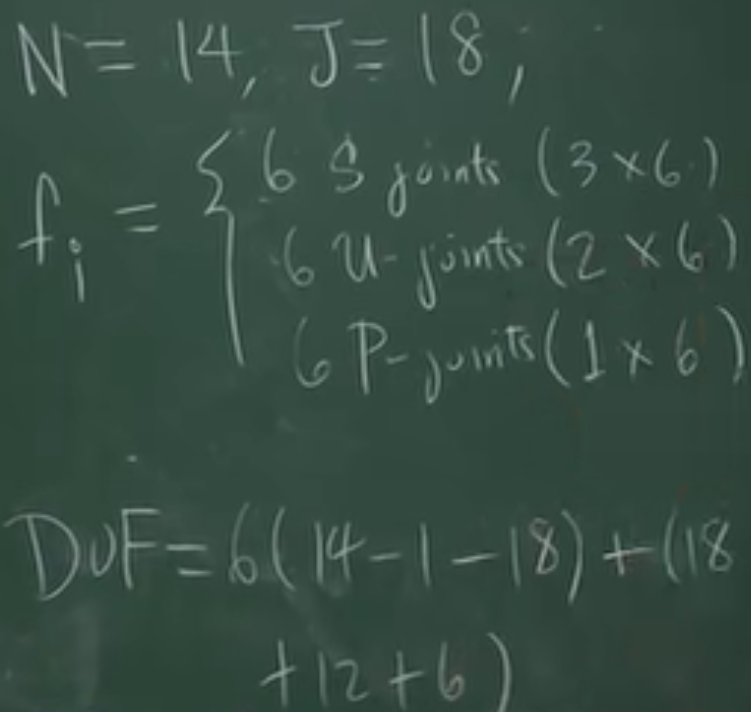 N = 14, J = 18,
fi = { 6 S joints (3 × 6)
6 U-joints (2 × 6)
6 P-joints (1 × 6)
DOF = 6(14 - 1 - 18) + (18
+ 12 + 6)